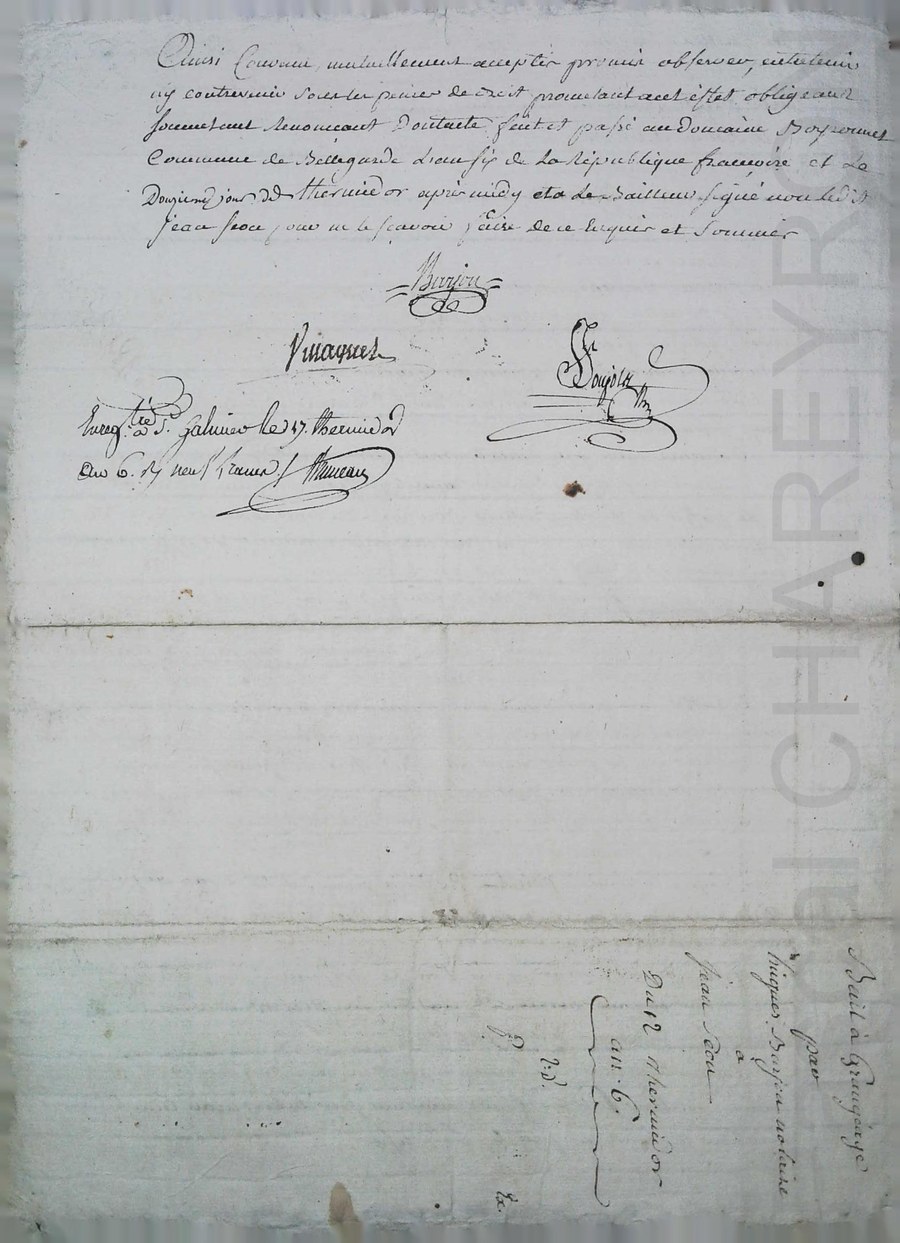 Ainsi Convenu, mutuellement accepté promis observer, entretenir
ny contrevenir sous les peines de droit promettant acct estet obligeant
soumettant Renonceant Dontacte fait et passé au Domaine
Commune de Bellegarde L'an six de La République françoise et Le
Douzieme jour de thermidor après midy et a Le Bailleur signé non ledit
Jean pour ne le scavoir faire de ce Enquis et Sommé
Barjon
enregtré a St galmier le 17. thermidor
an 6. Rs neuf francs
Bail à Grangéage
par
hugues Barjon notaire
a
Jean
Du 12 thermidor
an. 6.
CHAREYRON